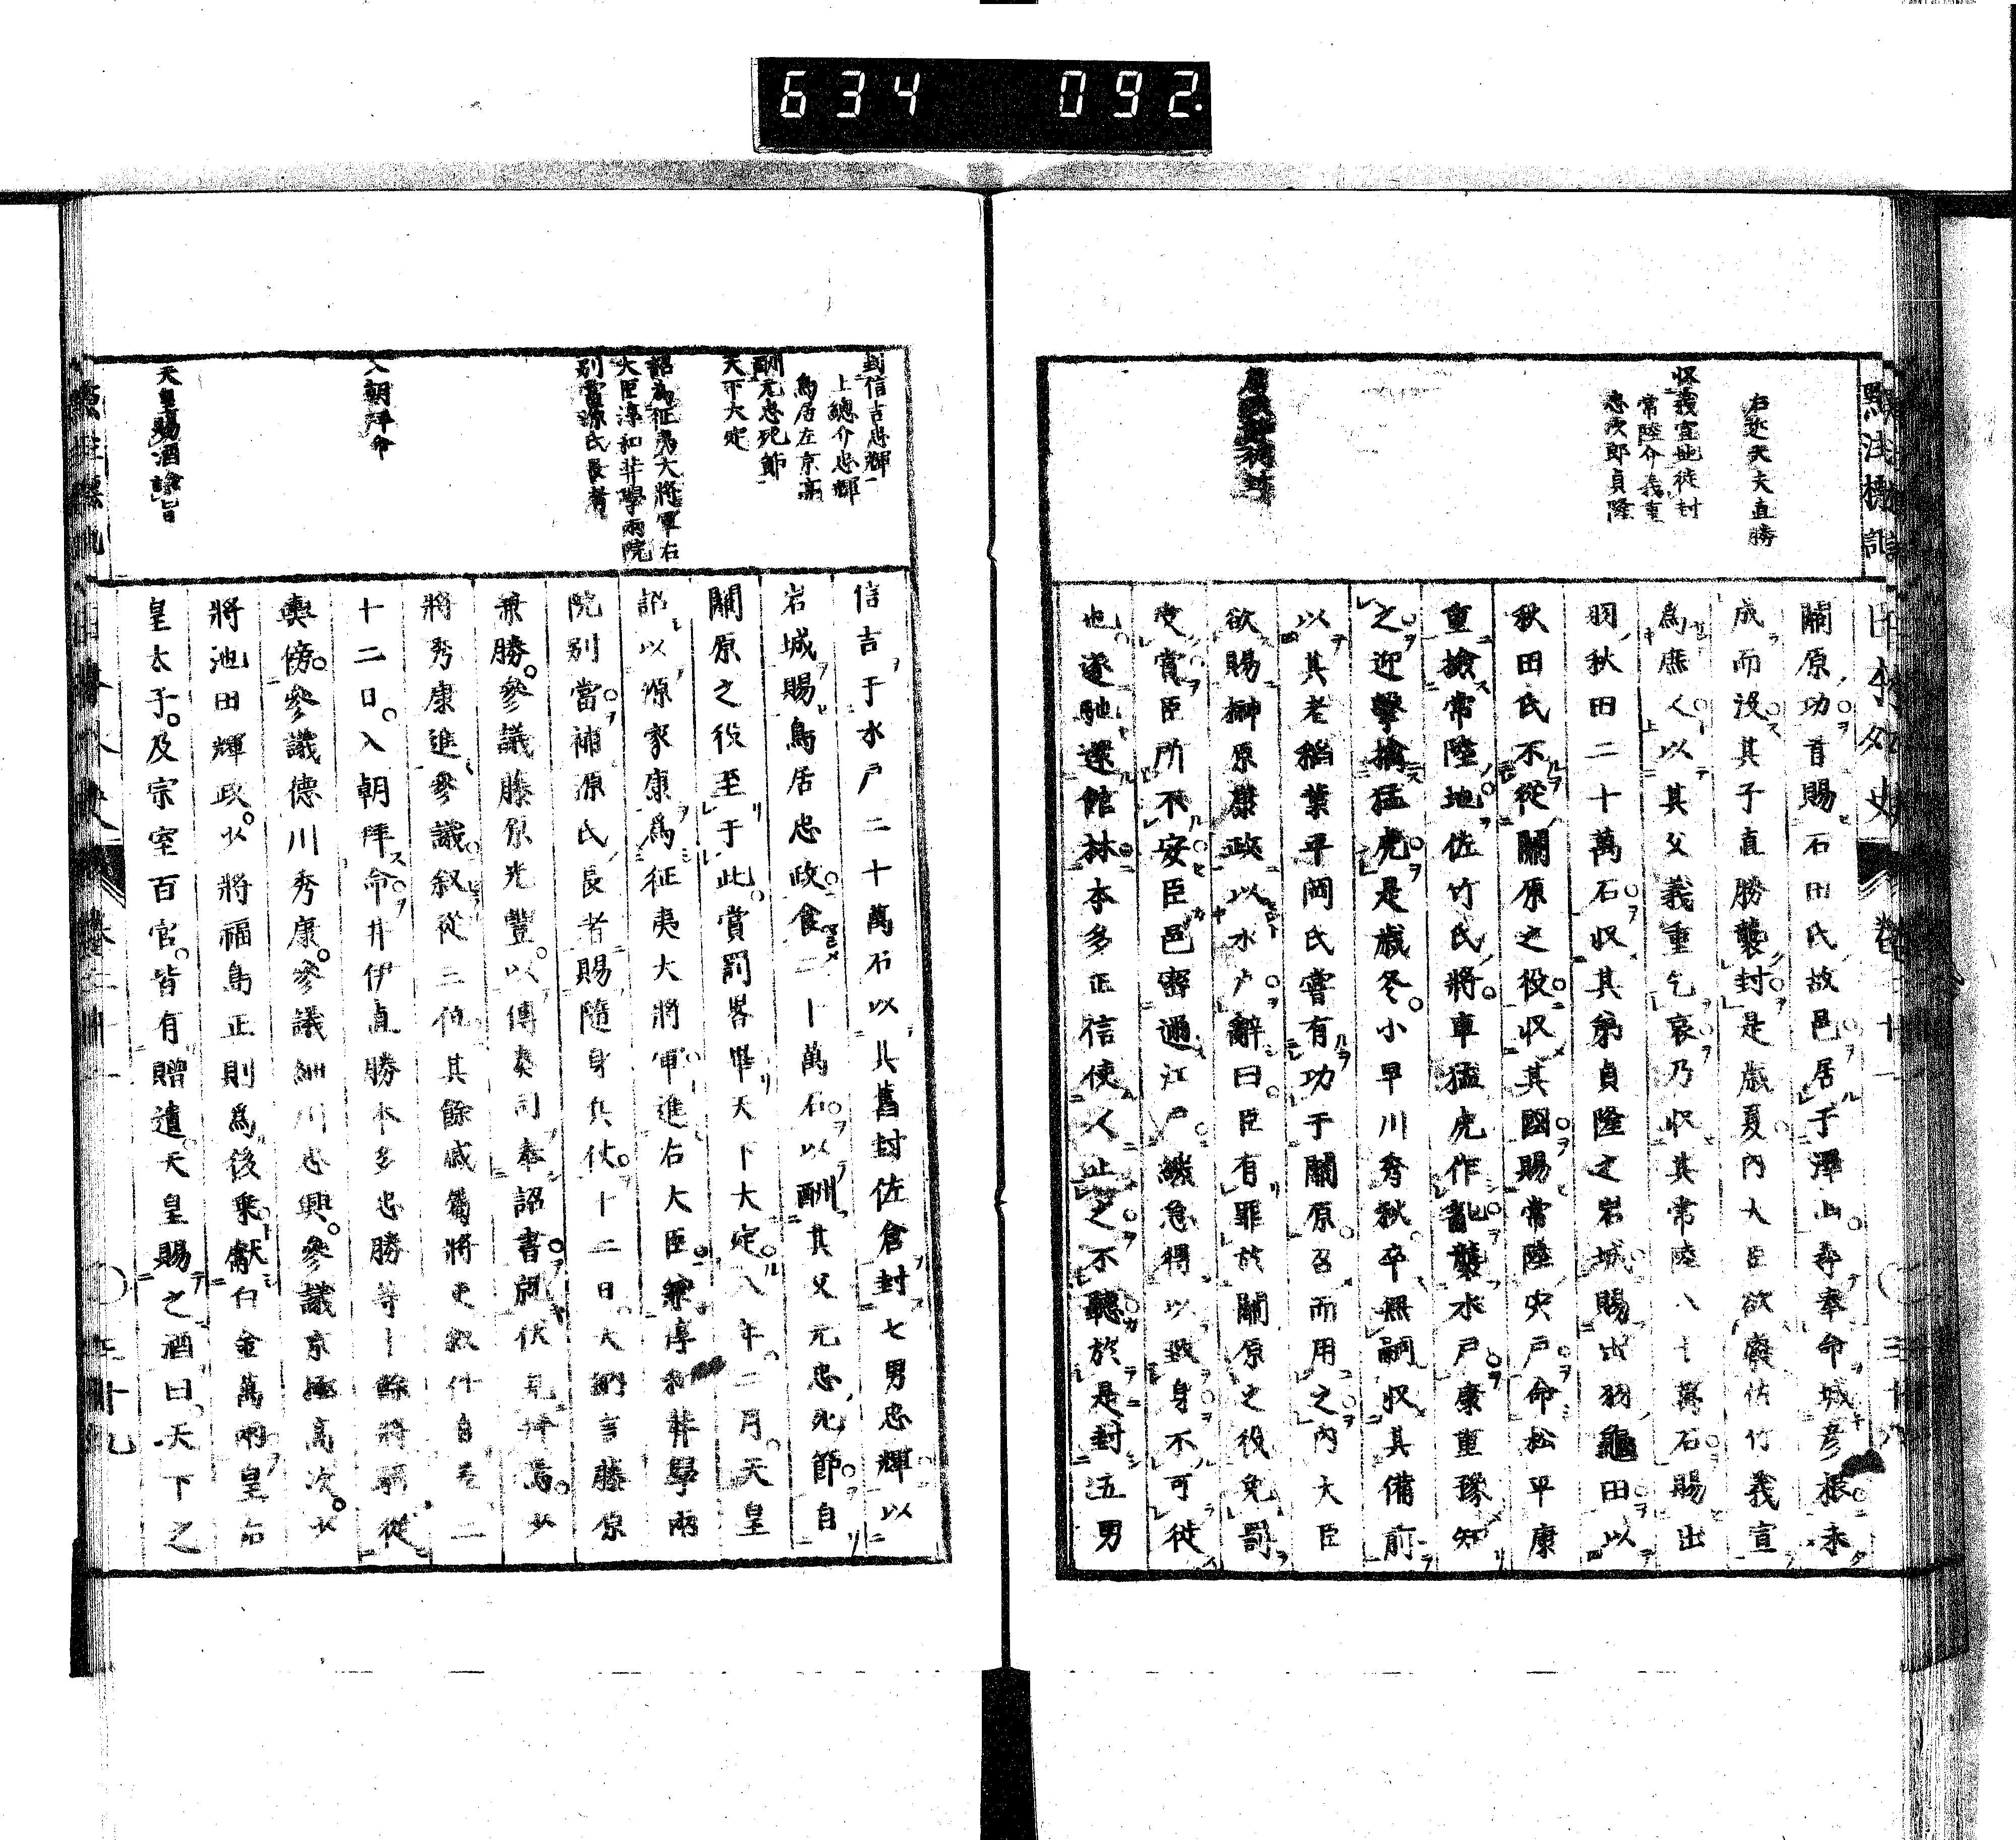 634 092
點註標記
日本外史
右近大夫直勝
收義宣地徙封
常陸介義重
忠次郎貞隆
關原功首賜石田氏故邑居于澤山尋奉命城彦根未
成而沒其子直勝襲封是歳夏内大臣欲廢佐竹義宣
爲庶人以其父義重乞哀乃收其常陸八十萬石賜出
羽秋田二十萬石收其弟貞隆之岩城賜出羽龜田以
秋田氏不從關原之役收其國賜常陸宍戸命松平康
重撿常陸地佐竹氏將車猛虎作亂襲水戸康重豫知
之迎擊擒猛虎是歳冬小早川秀秋卒無嗣收其備前
以其老稻葉平岡氏嘗有功于關原召而用之内大臣
欲賜榊原康政以水戸辭曰臣有罪於關原之役免罰
受賞臣所不安臣邑密邇江戸緩急得以致身不可徙
也遂馳還館林本多正信使人止之不聽於是封五男
封信吉忠輝
上總介忠輝
鳥居左京亮
酬元忠死節
天下大定
詔爲征夷大將軍右
大臣淳和奬學兩院
別當源氏長者
入朝拜命
天皇賜酒諭旨
信吉于水戸二十萬石以其舊封佐倉封七男忠輝以
岩城賜鳥居忠政食二十萬石以酬其父元忠死節自
關原之役至于此賞罰畧畢天下大定八年二月天皇
詔以源家康爲征夷大將軍進右大臣兼淳和奬學兩
院別當補源氏長者賜隨身兵仗十二日大納言藤原
兼勝參議藤原光豐以傳奏司奉詔書就伏見拜焉少
將秀康進參議叙從三位其餘戚屬將吏叙任自差二
十二日入朝拜命井伊直勝本多忠勝等十餘將騎從
輿傍參議德川秀康參議細川忠興參議京極高次少
將池田輝政以將福島正則爲後乘獻白金萬兩皇后
皇太子及宗室百官皆有贈遺天皇賜之酒曰天下之